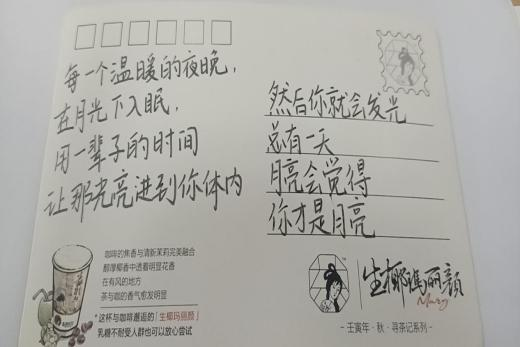 每一个温暖的夜晚，
在月光下入眠，
用一辈子的时间
让那光亮进到你体内
然后你就会发光
总有一天
月亮会觉得
你才是月亮
咖啡的焦香与清新茉莉完美融合
醇厚椰香中透着明显花香
在有风的地方
茶与咖的香气愈发明显
*这杯与咖啡邂逅的「生椰玛丽颜」
乳糖不耐受人群也可以放心尝试
生椰瑪丽颜
Mary
- 壬寅年·秋·寻茶记系列 -